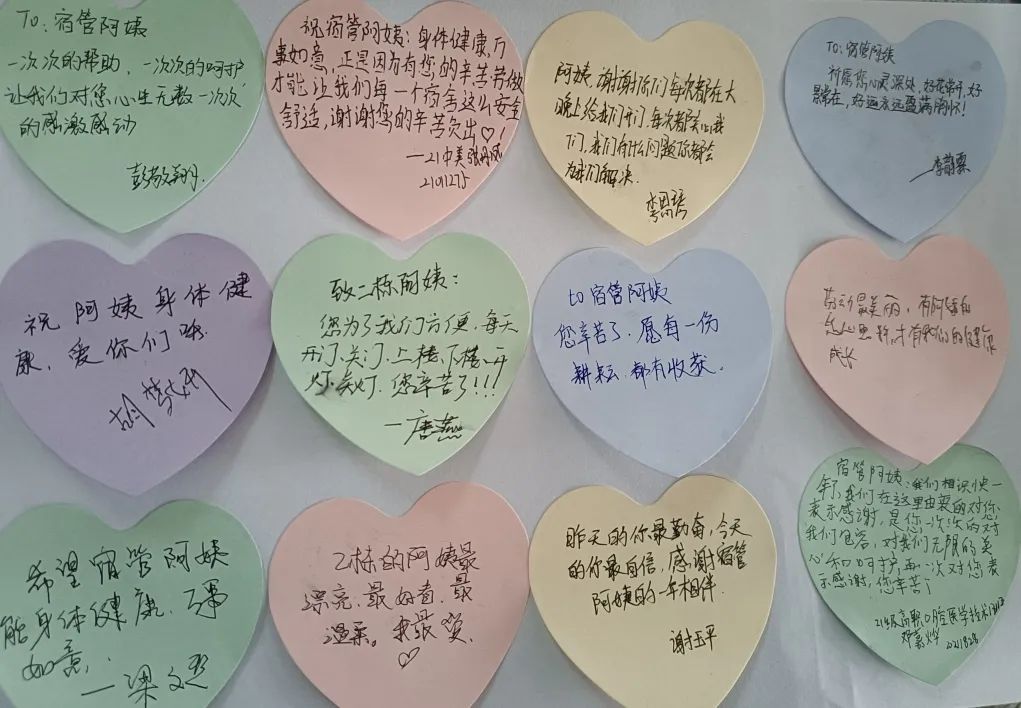 To: 宿管阿姨
一次次的帮助、一次次的呵护
让我们对您心生无数一次次
的感激感动
祝宿管阿姨: 身体健康, 万
事如意, 正是因为有您的辛苦劳做
才能让我们每一个宿舍这么安全
舒适, 谢谢您的辛苦负出♡!
—21中美张丹凤
2101275
阿姨, 谢谢你们每次都在大
晚上给我们开门, 每次都关心我
们, 我们有什么问题你都会
为我们解决.
李思琦
TO: 宿管阿姨
祈愿您心灵深处, 好花常开, 好
景常在, 好运永远盈满胸怀!
祝阿姨身体健
康, 爱你们哦.
致二栋阿姨:
您为了我们方便, 每天
开门、关门、上楼、下楼、开
灯、关灯. 您辛苦了!!!
—唐燕
to 宿管阿姨
您辛苦了. 愿每一份
耕耘, 都有收获.
劳动最美丽, 有阿姨的
才有我们的健康
成长
希望宿管阿姨
能身体健康, 万事
如意.
乙栋的阿姨最
漂亮, 最好看, 最
温柔。我最
♡
昨天的你最勤奋, 今天
的你最自信, 感谢宿管
阿姨的一年相伴.
谢玉平
宿管阿姨: 我们相识快一
年了, 我们在这里由衷的对你
表示感谢, 是你一次次的对
我们包容, 对我们无限的关
心和呵护, 再一次对您表
示感谢, 您辛苦了
21级高职口腔医学技术
2021828